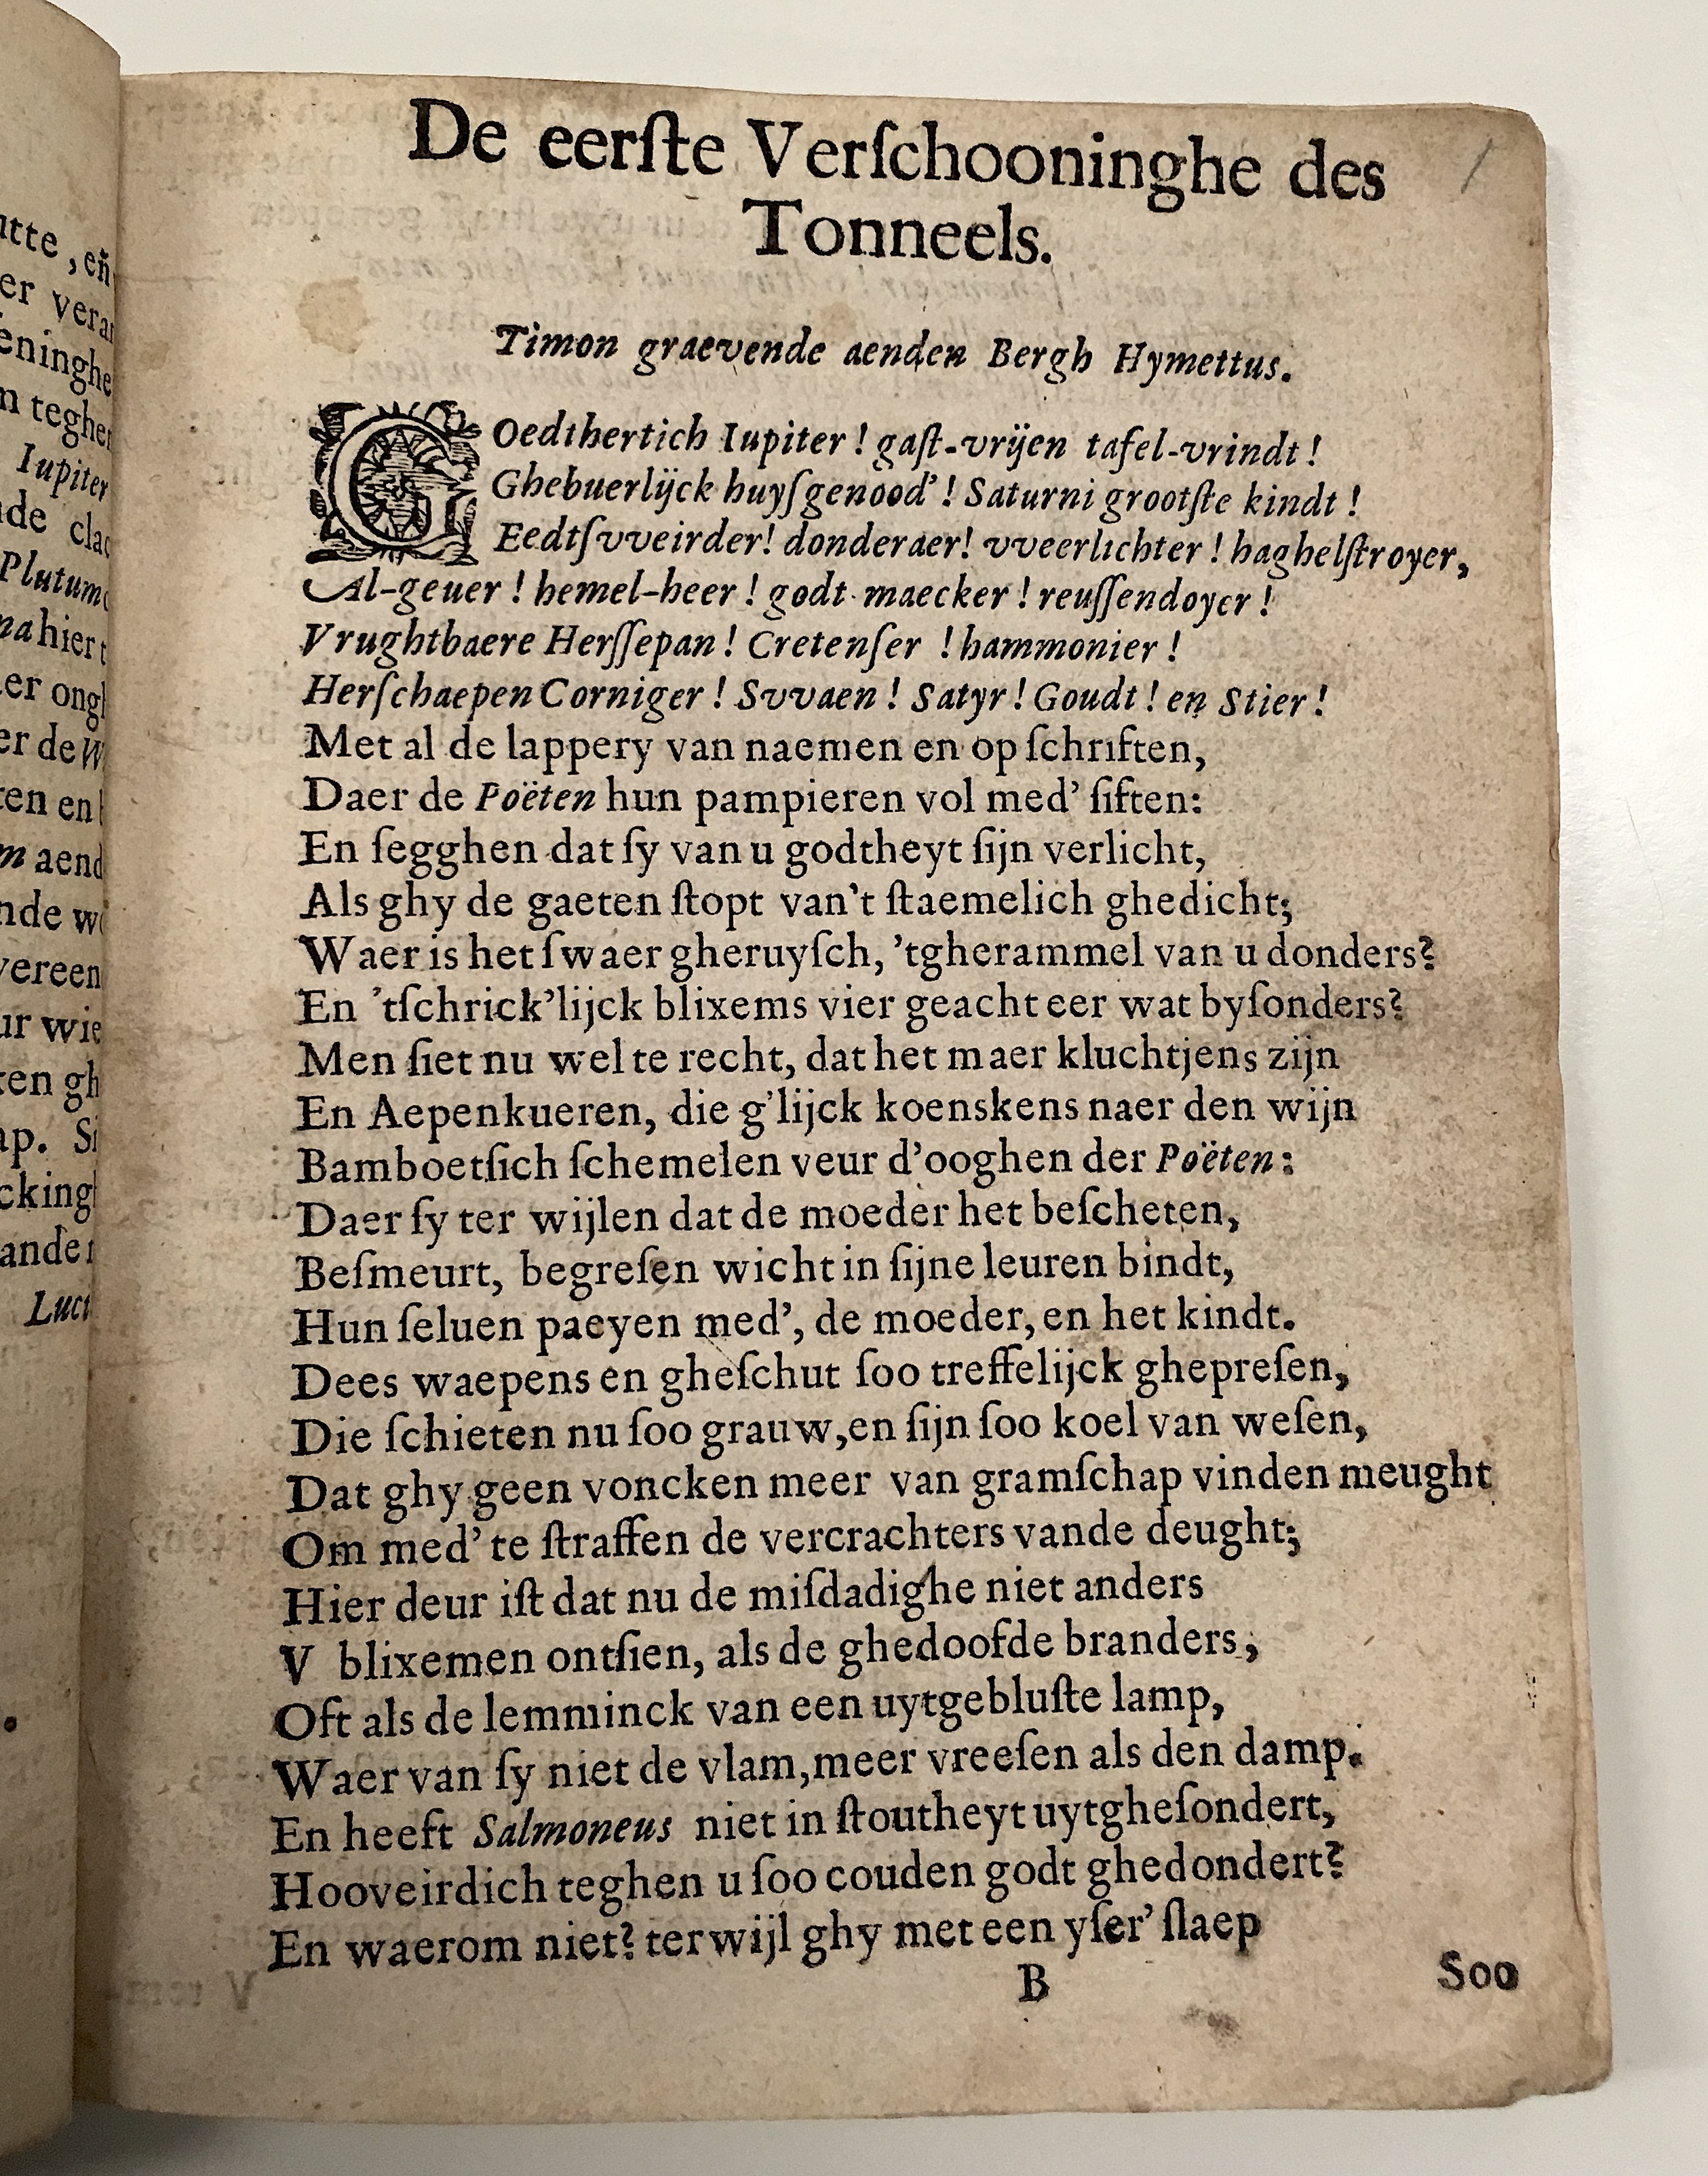 De eerſte Verſchooninghe des
Tonneels.
Timon graevende aenden Bergh Hymettus.
GOedthertich Iupiter ! gaſt-vrijen tafel-vrindt !
Ghebuerlijck huyſgenood' ! Saturni grootſte kindt !
Eedtſvveirder! donderaer! vveerlichter ! haghelſtroyer,
Al-geuer ! hemel-heer ! godt maecker ! reuſſendoyer !
Vrughtbaere Herſſepan ! Cretenſer ! hammonier !
Herſchaepen Corniger ! Svvaen ! Satyr ! Goudt ! en Stier !
Met al de lappery van naemen en op ſchriften,
Daer de Poëten hun pampieren vol med' ſiften:
En ſegghen dat ſy van u godtheyt ſijn verlicht,
Als ghy de gaeten ſtopt van't ſtaemelich ghedicht;
Waer is het ſwaer gheruyſch, 'tgherammel van u donders?
En 'tſchrick'lijck blixems vier geacht eer wat byſonders?
Men ſiet nu wel te recht, dat het maer kluchtjens zijn
En Aepenkueren, die g'lijck koenskens naer den wijn
Bamboetſich ſchemelen veur d'ooghen der Poëten:
Daer ſy ter wijlen dat de moeder het beſcheten,
Beſmeurt, begreſen wicht in ſijne leuren bindt,
Hun ſeluen paeyen med', de moeder, en het kindt.
Dees waepens en gheſchut ſoo treffelijck ghepreſen,
Die ſchieten nu ſoo grauw, en ſijn ſoo koel van weſen,
Dat ghy geen voncken meer van gramſchap vinden meught
Om med' te ſtraffen de vercrachters vande deught;
Hier deur iſt dat nu de miſdadighe niet anders
V blixemen ontſien, als de ghedoofde branders,
Oft als de lemminck van een uytgebluſte lamp,
Waer van ſy niet de vlam, meer vreeſen als den damp.
En heeft Salmoneus niet in ſtoutheyt uytgheſondert,
Hooveirdich teghen u ſoo couden godt ghedondert?
En waerom niet? terwijl ghy met een yſer' ſlaep
B
Soo